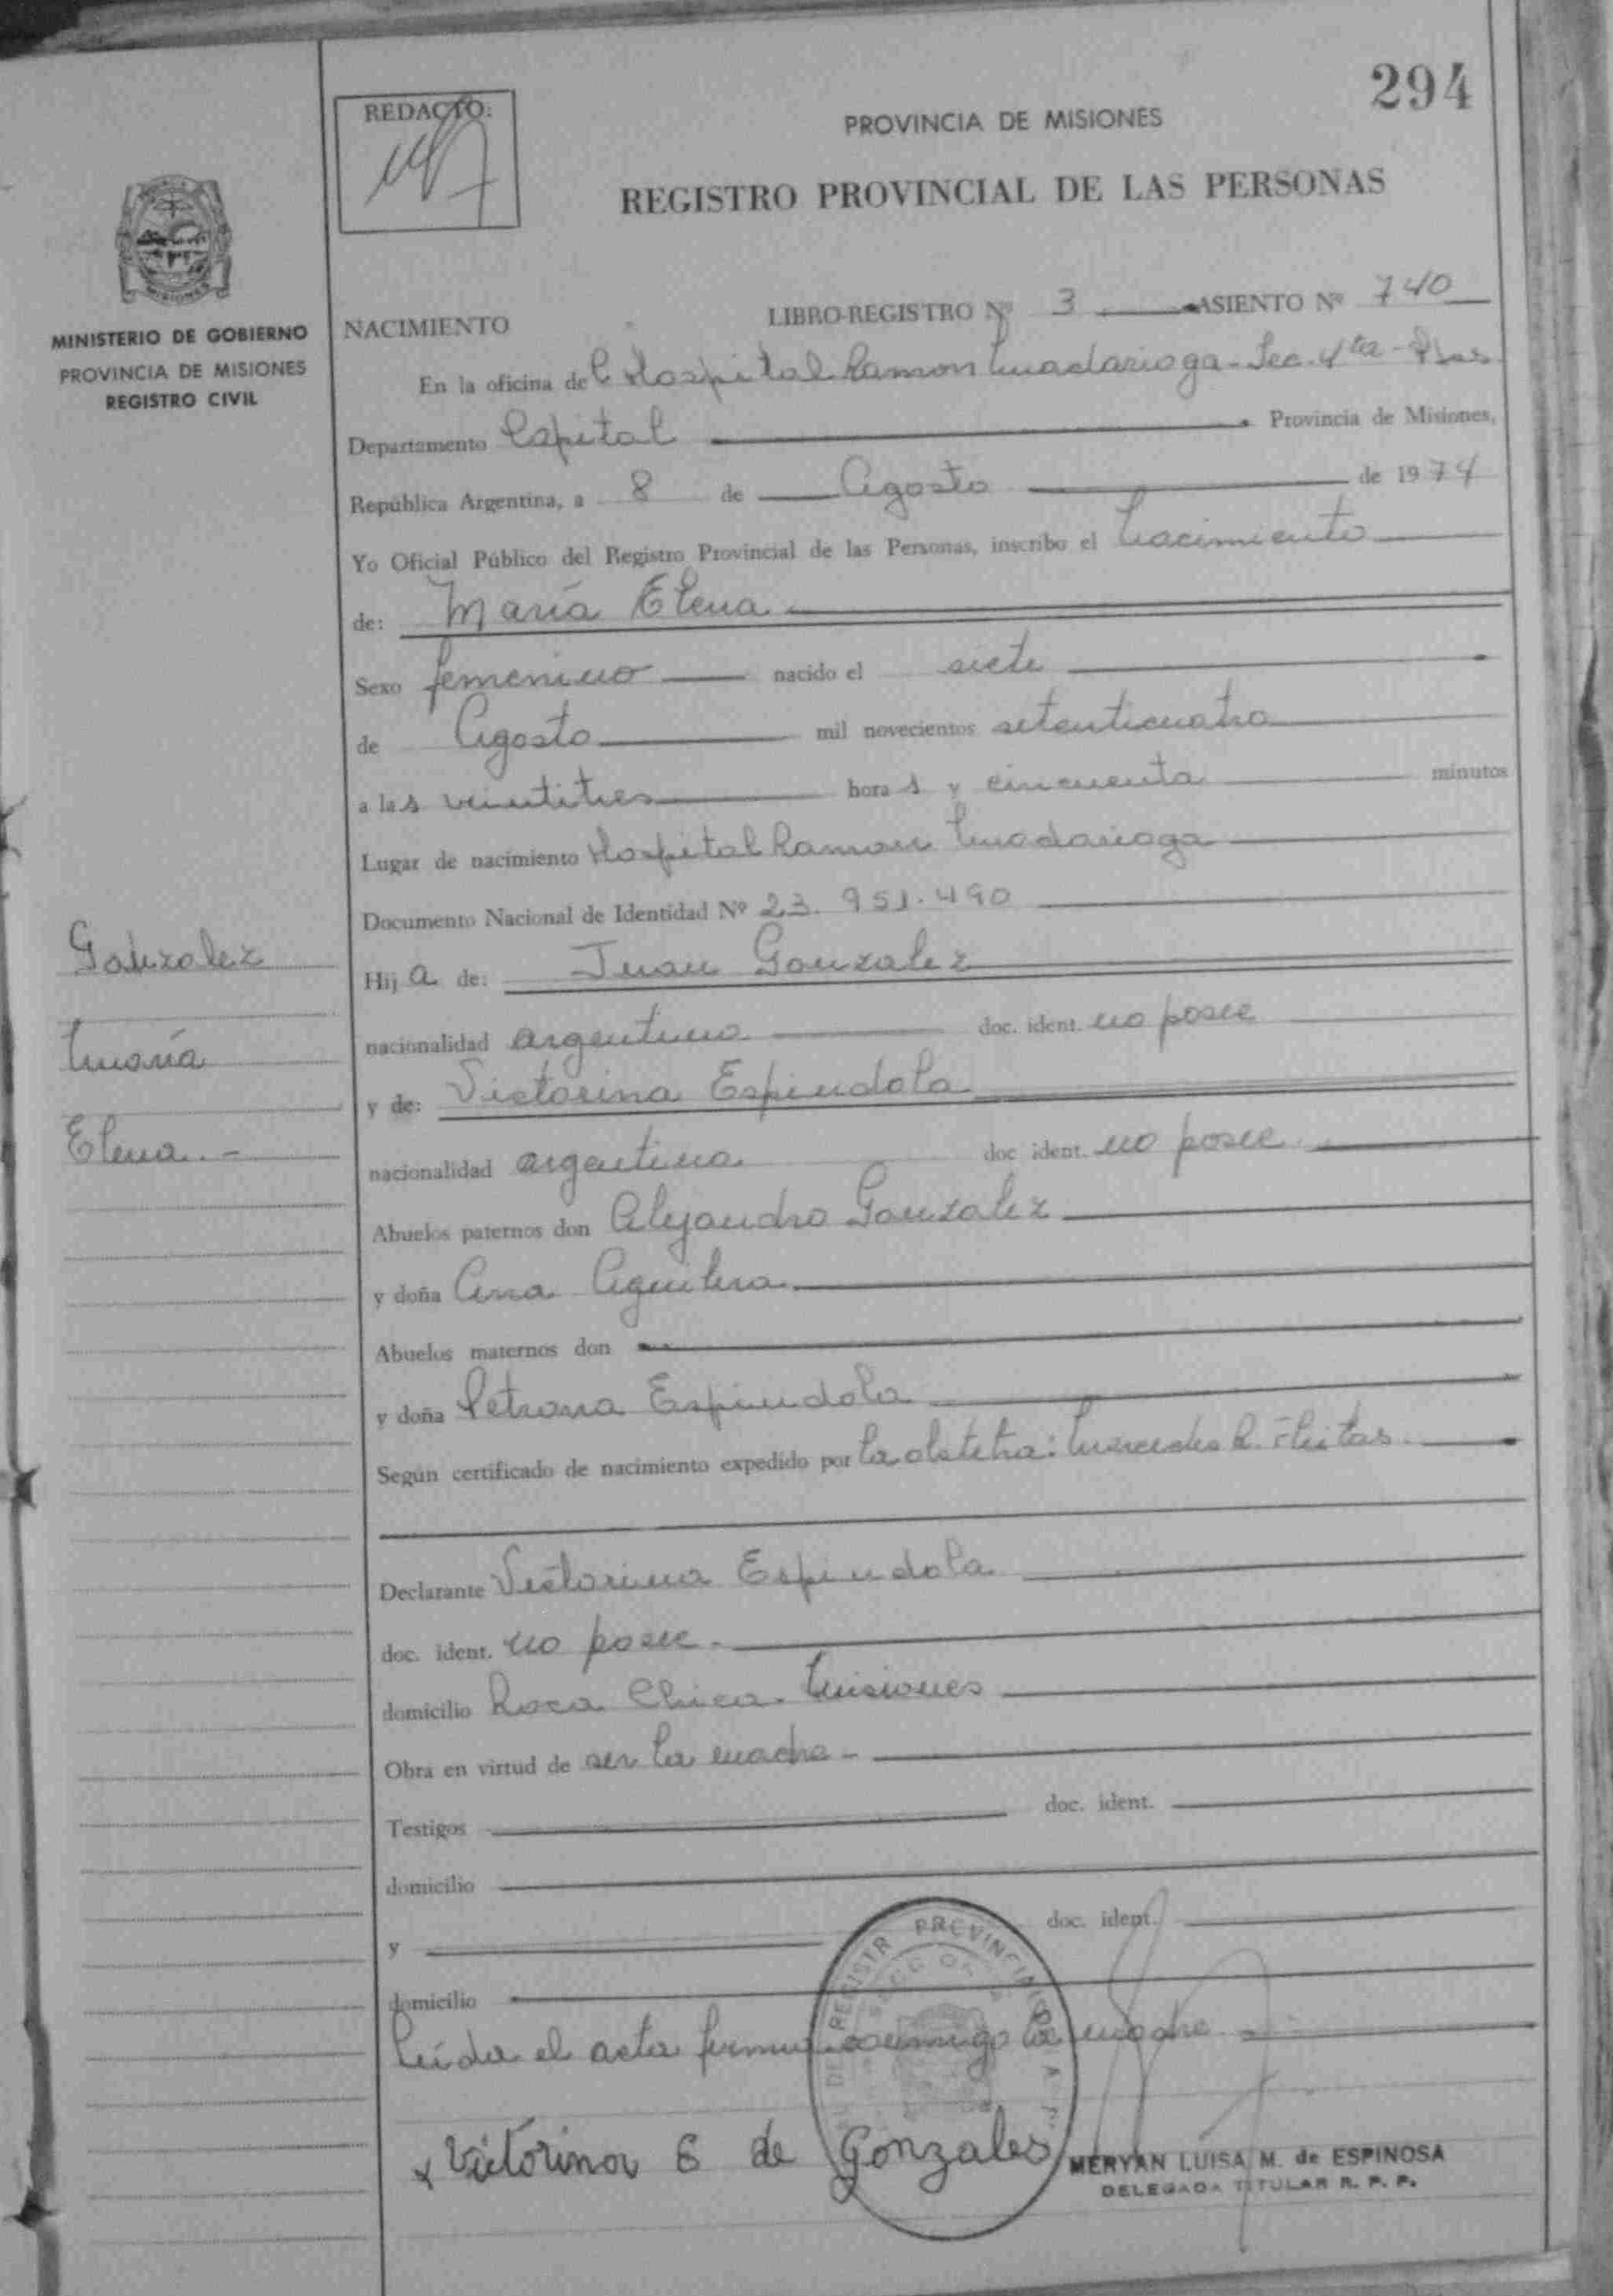 294
REDACTO:
PROVINCIA DE MISIONES
REGISTRO PROVINCIAL DE LAS PERSONAS
MISIONES
MINISTERIO DE GOBIERNO
PROVINCIA DE MISIONES
REGISTRO CIVIL
NACIMIENTO
LIBRO-REGISTRO Nº 3 ASIENTO Nº 740
En la oficina de Hospital Ramon Madariaga - Sec. 4ta -
Departamento Capital Provincia de Misiones,
República Argentina, a 8 de Agosto de 1974
Yo Oficial Público del Registro Provincial de las Personas, inscribo el Nacimiento
de: María Elena
Sexo femenino nacido el siete
de Agosto mil novecientos setenticuatro
a las veintitres horas y cincuenta minutos
Lugar de nacimiento Hospital Ramon Madariaga
Documento Nacional de Identidad Nº 23.951.490
Hija de: Juan Gonzalez
nacionalidad argentino doc. ident. no posee
y de: Victorina Espindola
nacionalidad argentina doc ident. no posee
Abuelos paternos don Alejandro Gonzalez
y doña Ana Aguilera
Abuelos maternos don
y doña Petrona Espindola
Según certificado de nacimiento expedido por la obstetra: Mercedes R. Fleitas.
Declarante Victorina Espindola
doc. ident. no posee.
domicilio Roca Chica. Misiones
Obra en virtud de ser la madre -
Testigos doc. ident.
domicilio
y doc. ident.
domicilio
Leída el acta firma conmigo la madre
x Victorina E de Gonzales
MERYAN LUISA M. de ESPINOSA
DELEGADA TITULAR R. P. P.
Gonzalez
María
Elena. -